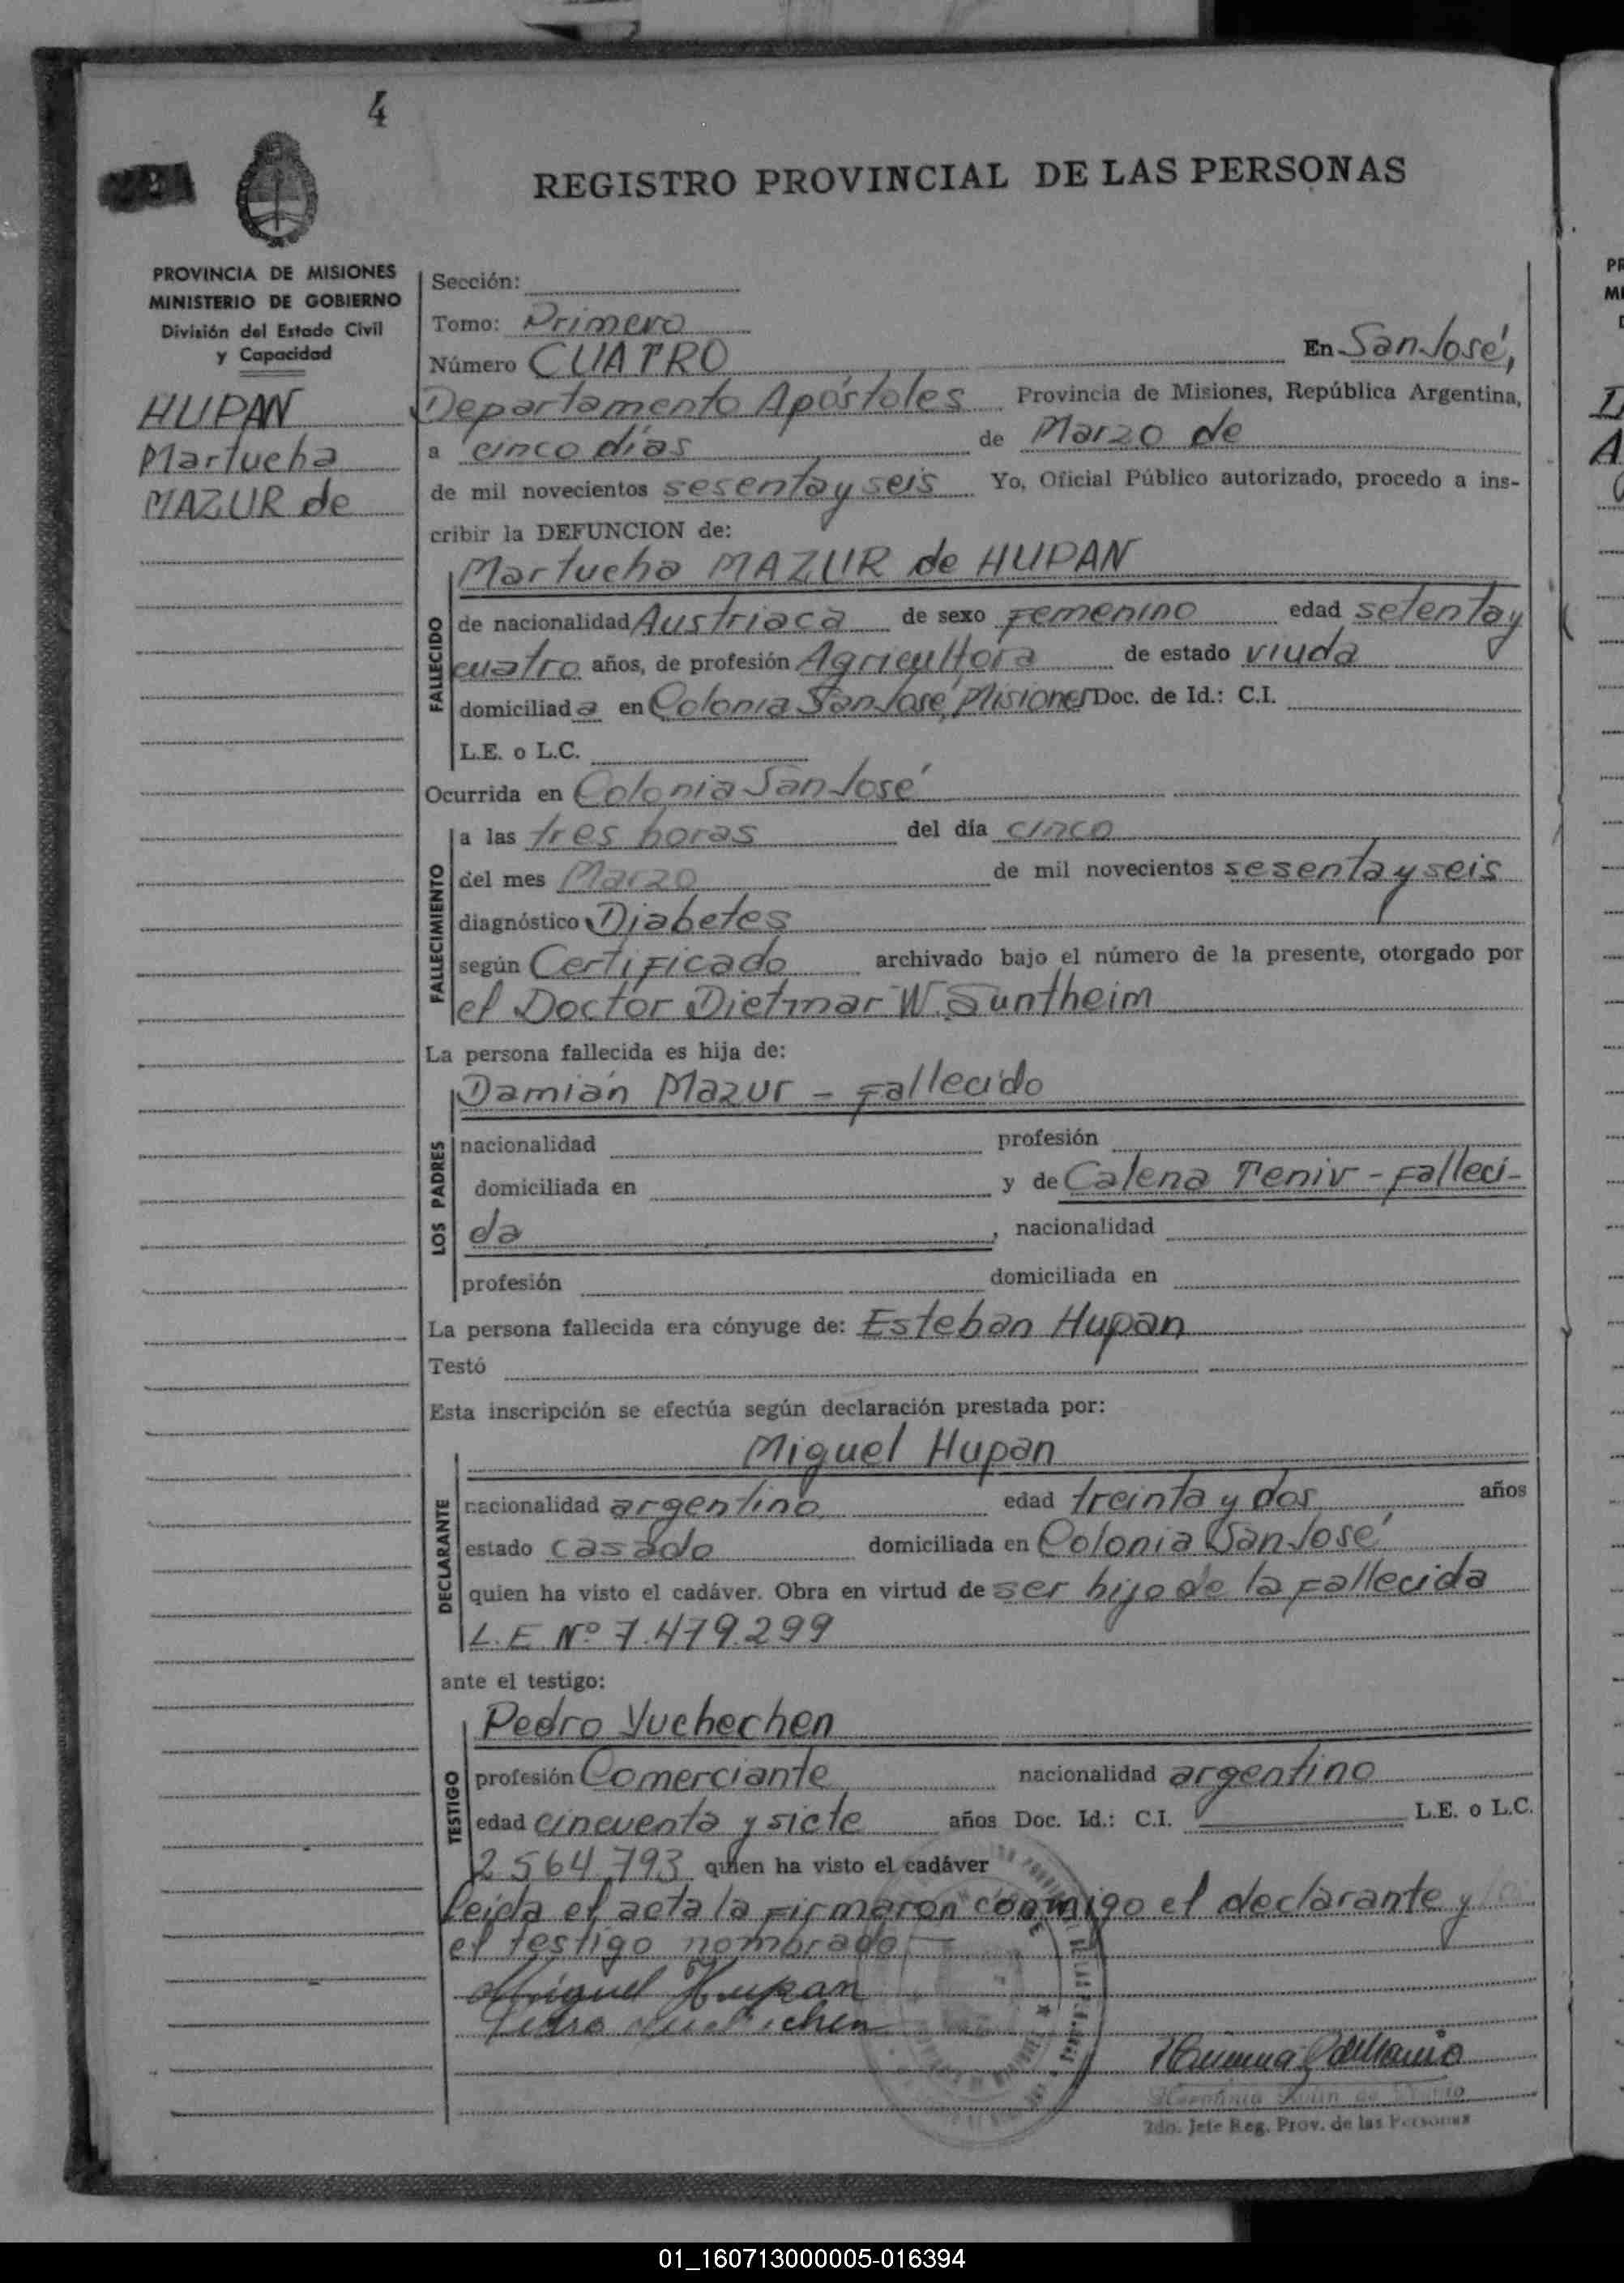 4
REGISTRO PROVINCIAL DE LAS PERSONAS
PROVINCIA DE MISIONES
MINISTERIO DE GOBIERNO
División del Estado Civil
y Capacidad
HUPAN
Martucha
MAZUR de
Sección:
Tomo: Primero
Número CUATRO En San José,
Departamento Apóstoles Provincia de Misiones, República Argentina,
a cinco días de Marzo de
de mil novecientos sesenta y seis Yo, Oficial Público autorizado, procedo a ins-
cribir la DEFUNCION de:
Martucha MAZUR de HUPAN
FALLECIDO
de nacionalidad Austriaca de sexo Femenino edad setenta y
cuatro años, de profesión Agricultora de estado viuda
domiciliad a en Colonia San José, Misiones Doc. de Id.: C.I.
L.E. o L.C.
Ocurrida en Colonia San José
FALLECIMIENTO
a las tres horas del día cinco
del mes Marzo de mil novecientos sesenta y seis
diagnóstico Diabetes
según Certificado archivado bajo el número de la presente, otorgado por
el Doctor Dietmar W. Suntheim
La persona fallecida es hija de:
LOS PADRES
Damián Mazur - Fallecido
nacionalidad profesión
domiciliada en y de Calena Teniv - Falleci-
da, nacionalidad
profesión domiciliada en
La persona fallecida era cónyuge de: Esteban Hupan
Testó
Esta inscripción se efectúa según declaración prestada por:
DECLARANTE
Miguel Hupan
nacionalidad argentino edad treinta y dos años
estado casado domiciliada en Colonia San José
quien ha visto el cadáver. Obra en virtud de ser hijo de la fallecida
L.E. Nº 7.479.299
ante el testigo:
TESTIGO
Pedro Yuchechen
profesión Comerciante nacionalidad argentino
edad cincuenta y siete años Doc. Id.: C.I. L.E. o L.C.
2564.793 quien ha visto el cadáver
Leída el acta la firmaron conmigo el declarante y
el testigo nombrado
Miguel Hupan
Pedro Yuchechen
2do. Jefe Reg. Prov. de las Personas
01_160713000005-016394